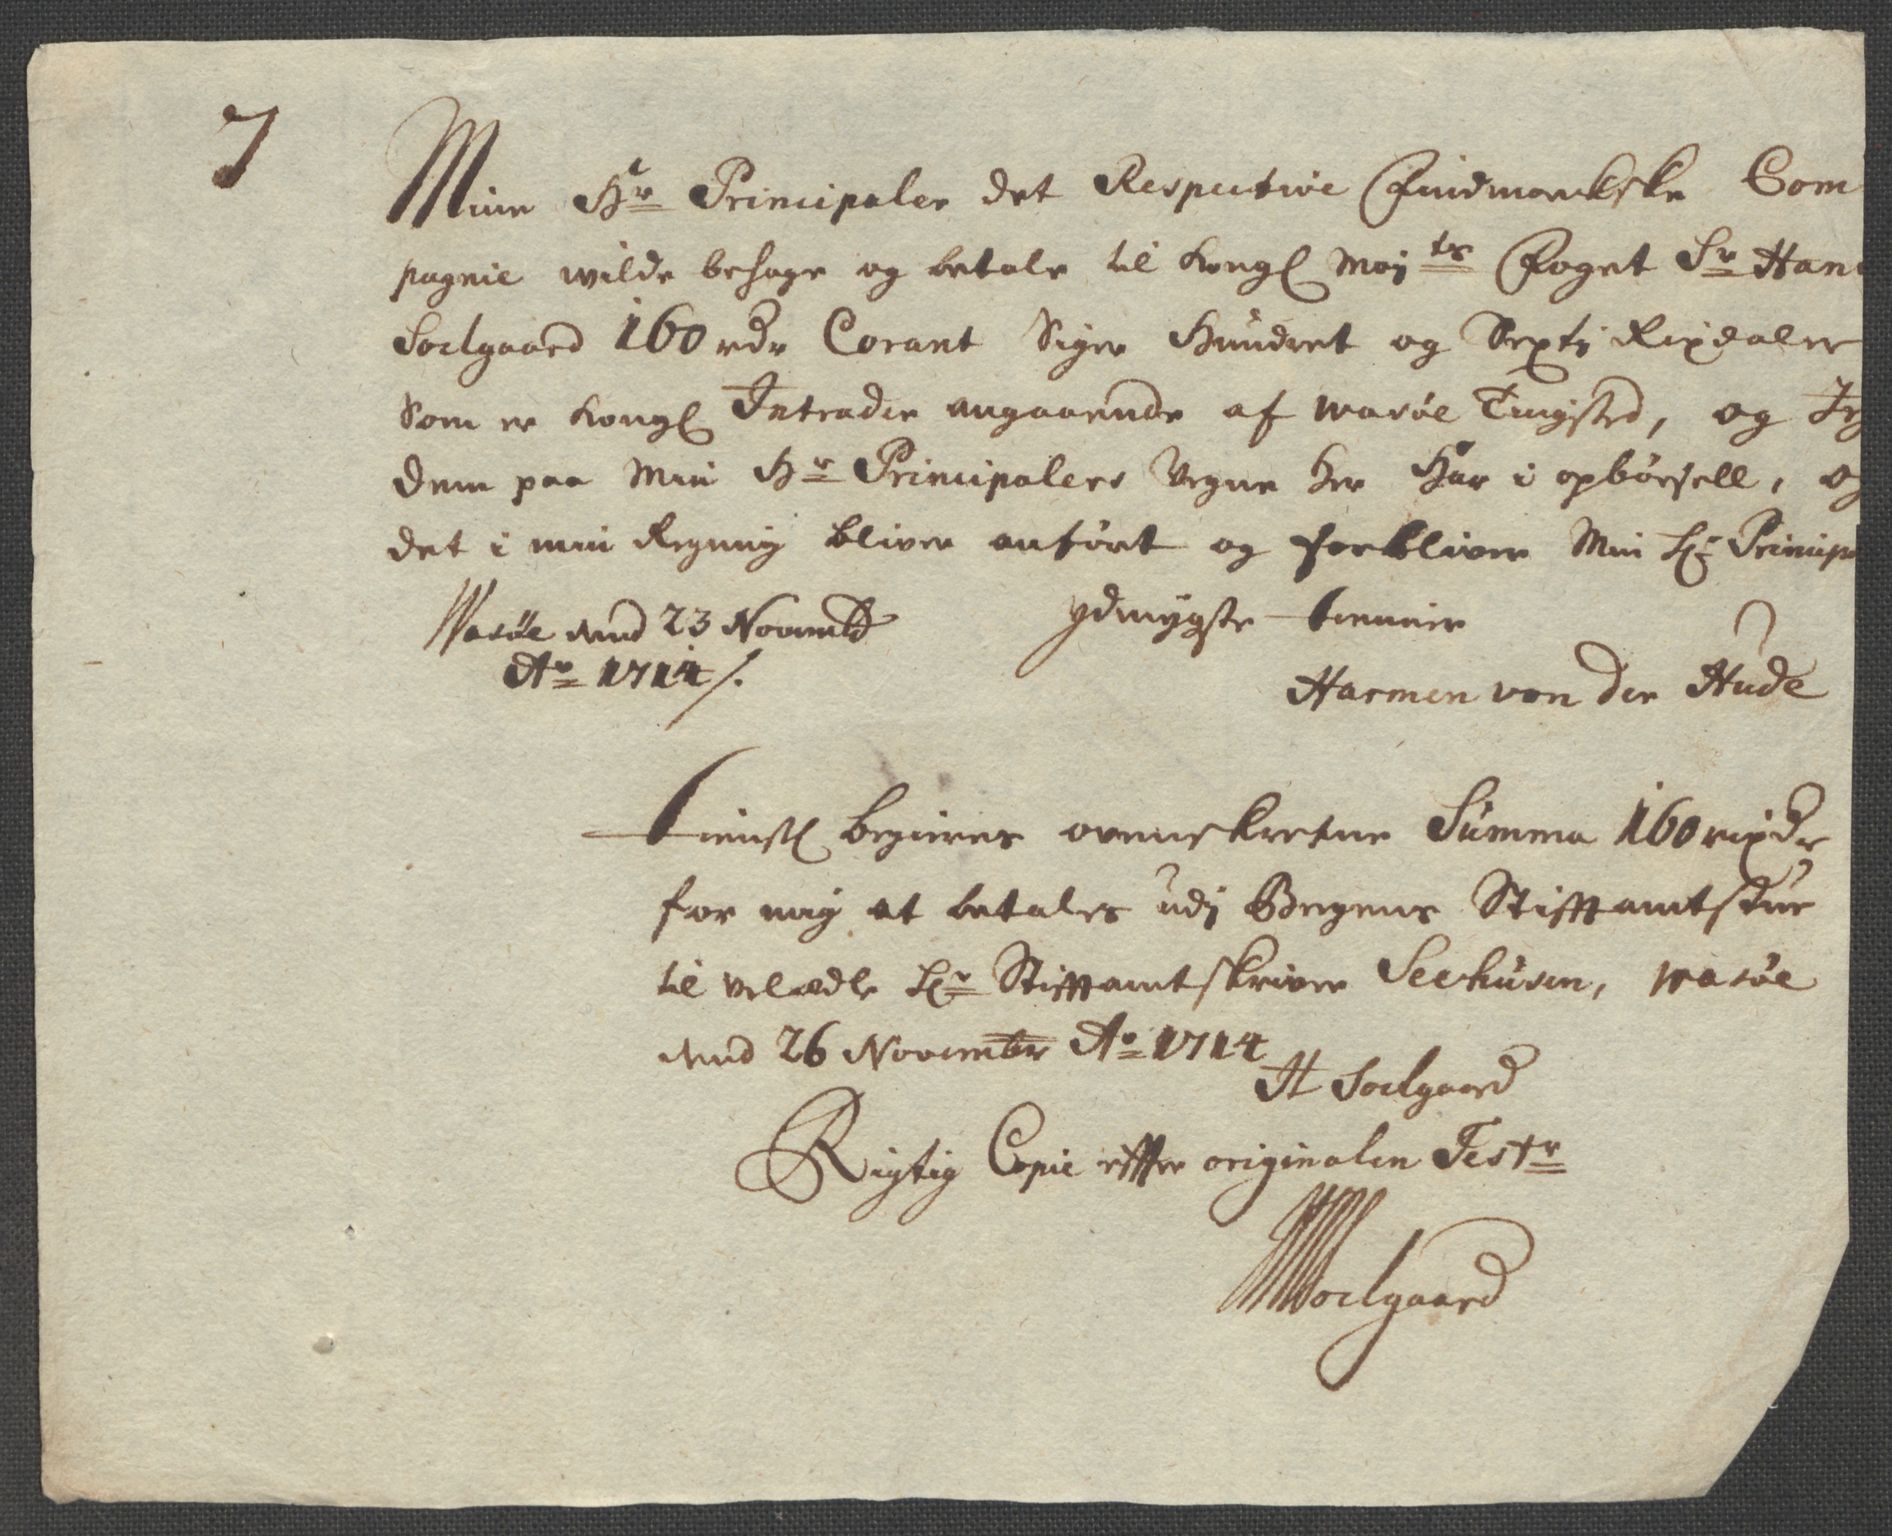 7
Mine Hr Principaler det Respective Findmarckske Com
pagnie wilde behage og betale til Kongl May ts Foget Sr Han
Soelgaard 160 rdr Corant Siger Hundret og Sexti Rixdaler
Som er Kongl Intrader angaaende af Wasøe Tingsted, og Je
dem paa Min Hr Principalers Vegne her Har i opbørsell, og
det i min Regning bliver anført og forbliver Min Hr Princip
Wasøe dend 23 Novembr ydmygste tienner
Ao 1714 /.
Harmen von der Hude
tienstl begieres ovenskrefne Summa 160 rixdr
for mig at betales udj Bergens Stifftamtstue
til velædle Hr Stifftamtskriver Seehusen, Wasøe
dend 26 Novembr Ao 1714
H Soelgaard
Rigtig Copie effter originalen Testr
HSoelgaard